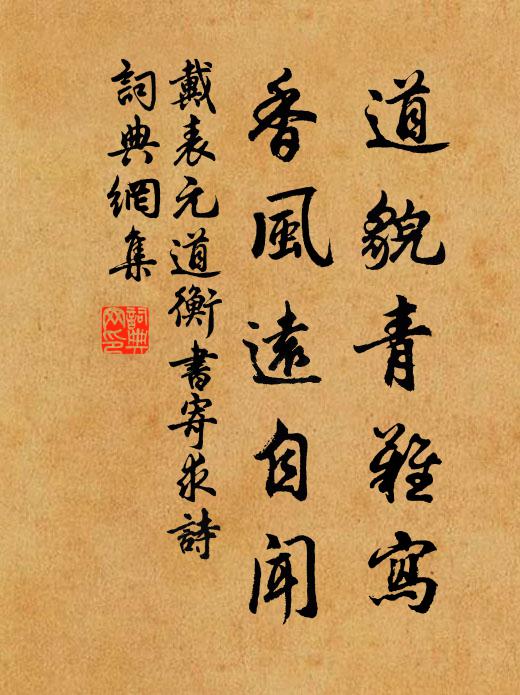 道貌青難寫
香風遠自聞
戴表元道衡書寄求詩
詞典網集
詞典網印